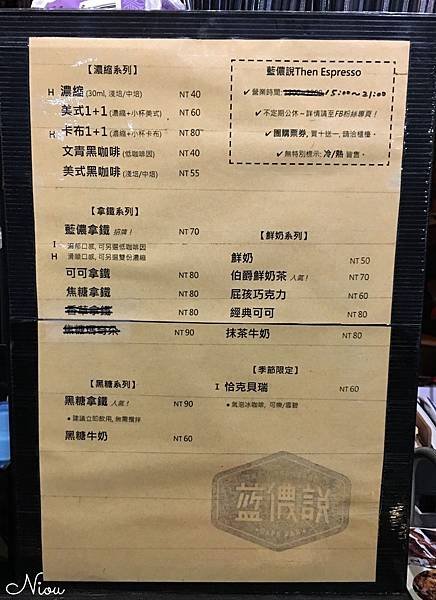 【濃縮系列】
H 濃縮 (30ml, 淺焙/中焙) NT 40
美式1+1 (濃縮+小杯美式) NT 60
H 卡布1+1 (濃縮+小杯卡布) NT 80
文青黑咖啡 (低咖啡因) NT 40
美式黑咖啡 (淺焙/中焙) NT 55
藍儂說Then Espresso
✔ 營業時間: 15:00~21:00
✔ 不定期公休~詳情請至FB粉絲專頁!
✔ 團購票券, 買十送一, 請洽櫃檯。
✔ 無特別標示: 冷/熱 皆售。
【拿鐵系列】
藍儂拿鐵 招牌! NT 70
I 濃郁口感, 可另選低咖啡因
H 滑順口感, 可另選雙份濃縮
可可拿鐵 NT 80
焦糖拿鐵 NT 80
香草拿鐵 NT 80
焦糖瑪奇朵 NT 90
【鮮奶系列】
鮮奶 NT 50
伯爵鮮奶茶 人氣! NT 70
屁孩巧克力 NT 60
經典可可 NT 80
抹茶牛奶 NT 80
【黑糖系列】
黑糖拿鐵 人氣! NT 90
● 建議立即飲用, 無需攪拌
黑糖牛奶 NT 60
【季節限定】
I 恰克貝瑞 NT 60
● 氣泡冰咖啡, 可樂/雪碧
藍儂說
Niou